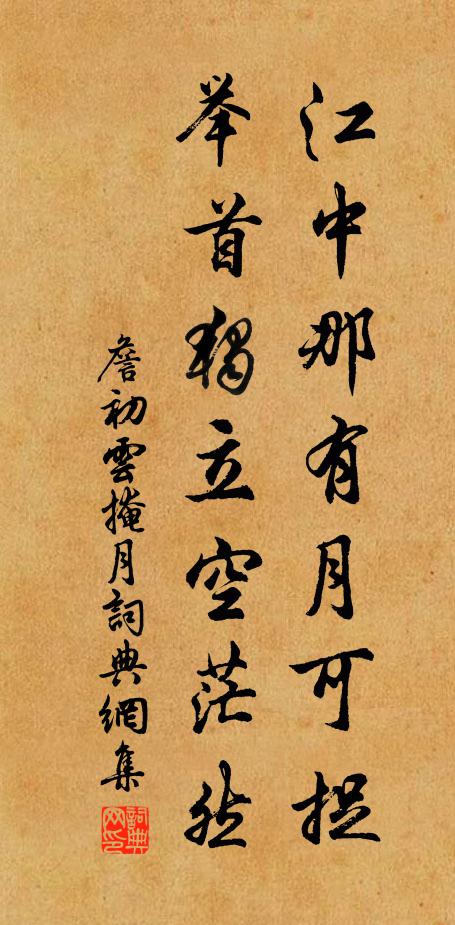 江中那有月可捉
举首獨立空茫然
詹初雲掩月詞典網集
詞典网印